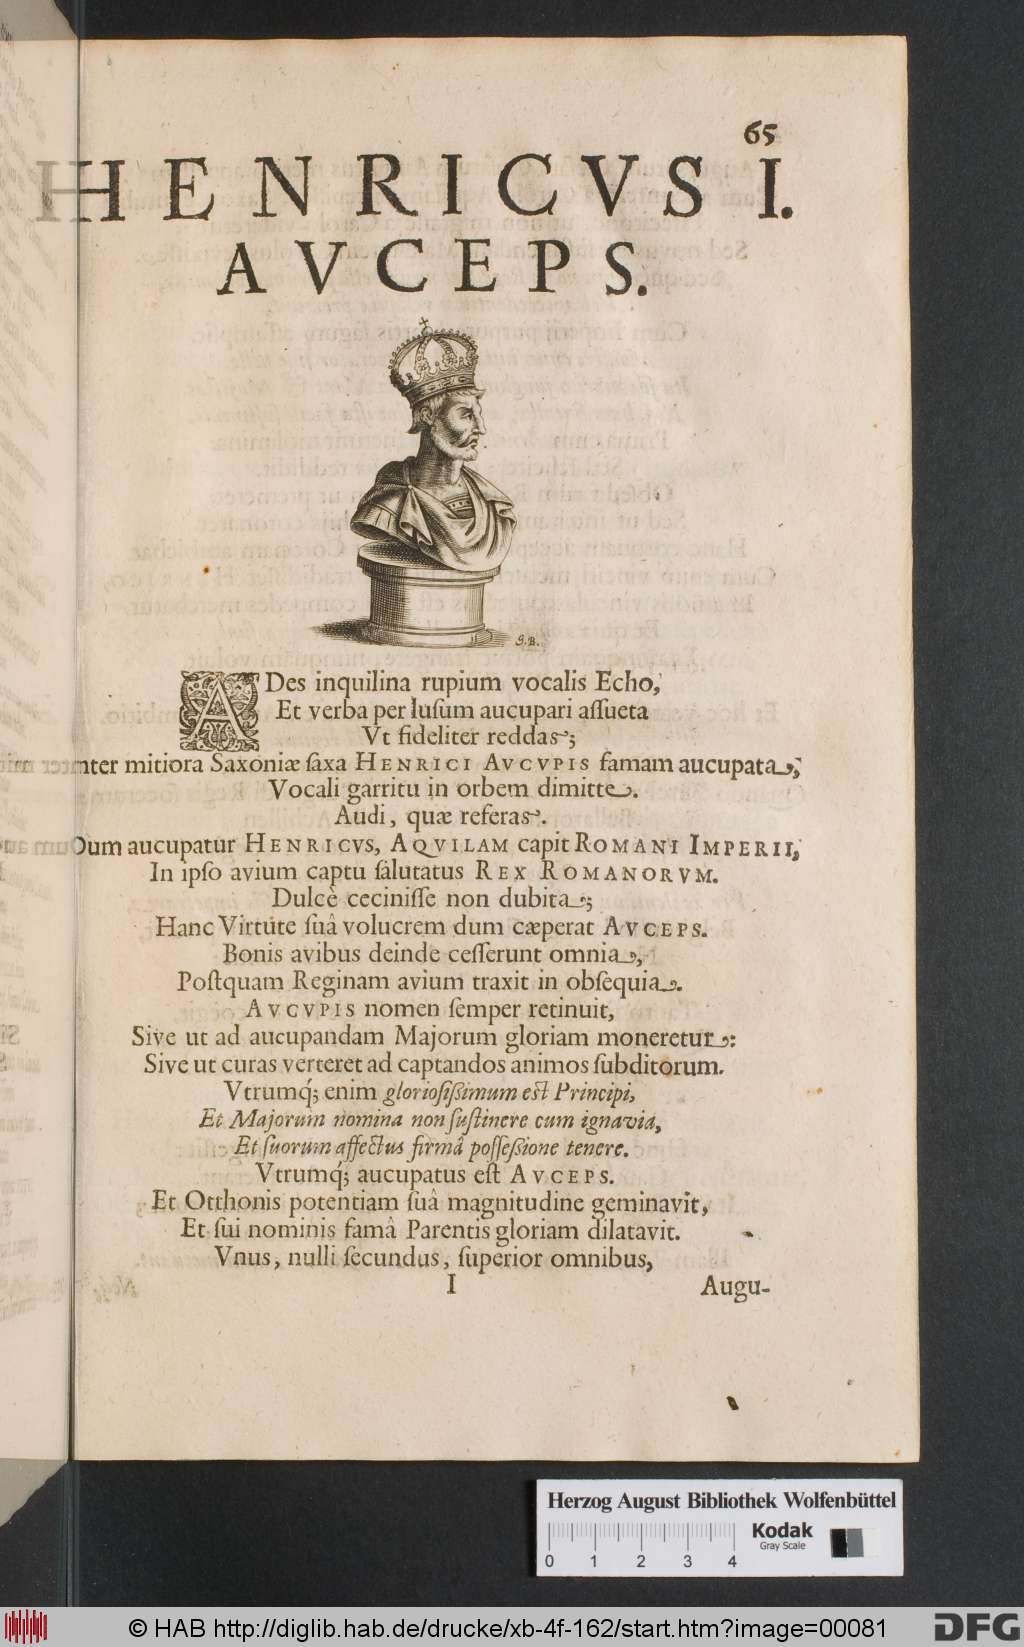 65
HENRICVS I.
AVCEPS.
G.B.
ADes inquilina rupium vocalis Echo,
Et verba per luſum aucupari aſſueta
Vt fideliter reddas;
Inter mitiora Saxoniæ ſaxa HENRICI AVCVPIS famam aucupata,
Vocali garritu in orbem dimitte.
Audi, quæ referas.
Dum aucupatur HENRICVS, AQVILAM capit ROMANI IMPERII,
In ipſo avium captu ſalutatus REX ROMANORVM.
Dulcè ceciniſſe non dubita;
Hanc Virtute ſuâ volucrem dum cæperat AVCEPS.
Bonis avibus deinde ceſſerunt omnia,
Poſtquam Reginam avium traxit in obſequia.
AVCVPIS nomen ſemper retinuit,
Sive ut ad aucupandam Majorum gloriam moneretur:
Sive ut curas verteret ad captandos animos ſubditorum.
Vtrumq́; enim glorioſiſſimum eſt Principi,
Et Majorum nomina non ſuſtinere cum ignavia,
Et ſuorum affectus firmâ poſſeſſione tenere.
Vtrumq́; aucupatus eſt AVCEPS.
Et Otthonis potentiam ſuâ magnitudine geminavit,
Et ſui nominis famâ Parentis gloriam dilatavit.
Vnus, nulli ſecundus, ſuperior omnibus,
I Augu-
Herzog August Bibliothek Wolfenbüttel
Kodak
Gray Scale
0 1 2 3 4
© HAB http://diglib.hab.de/drucke/xb-4f-162/start.htm?image=00081
DFG